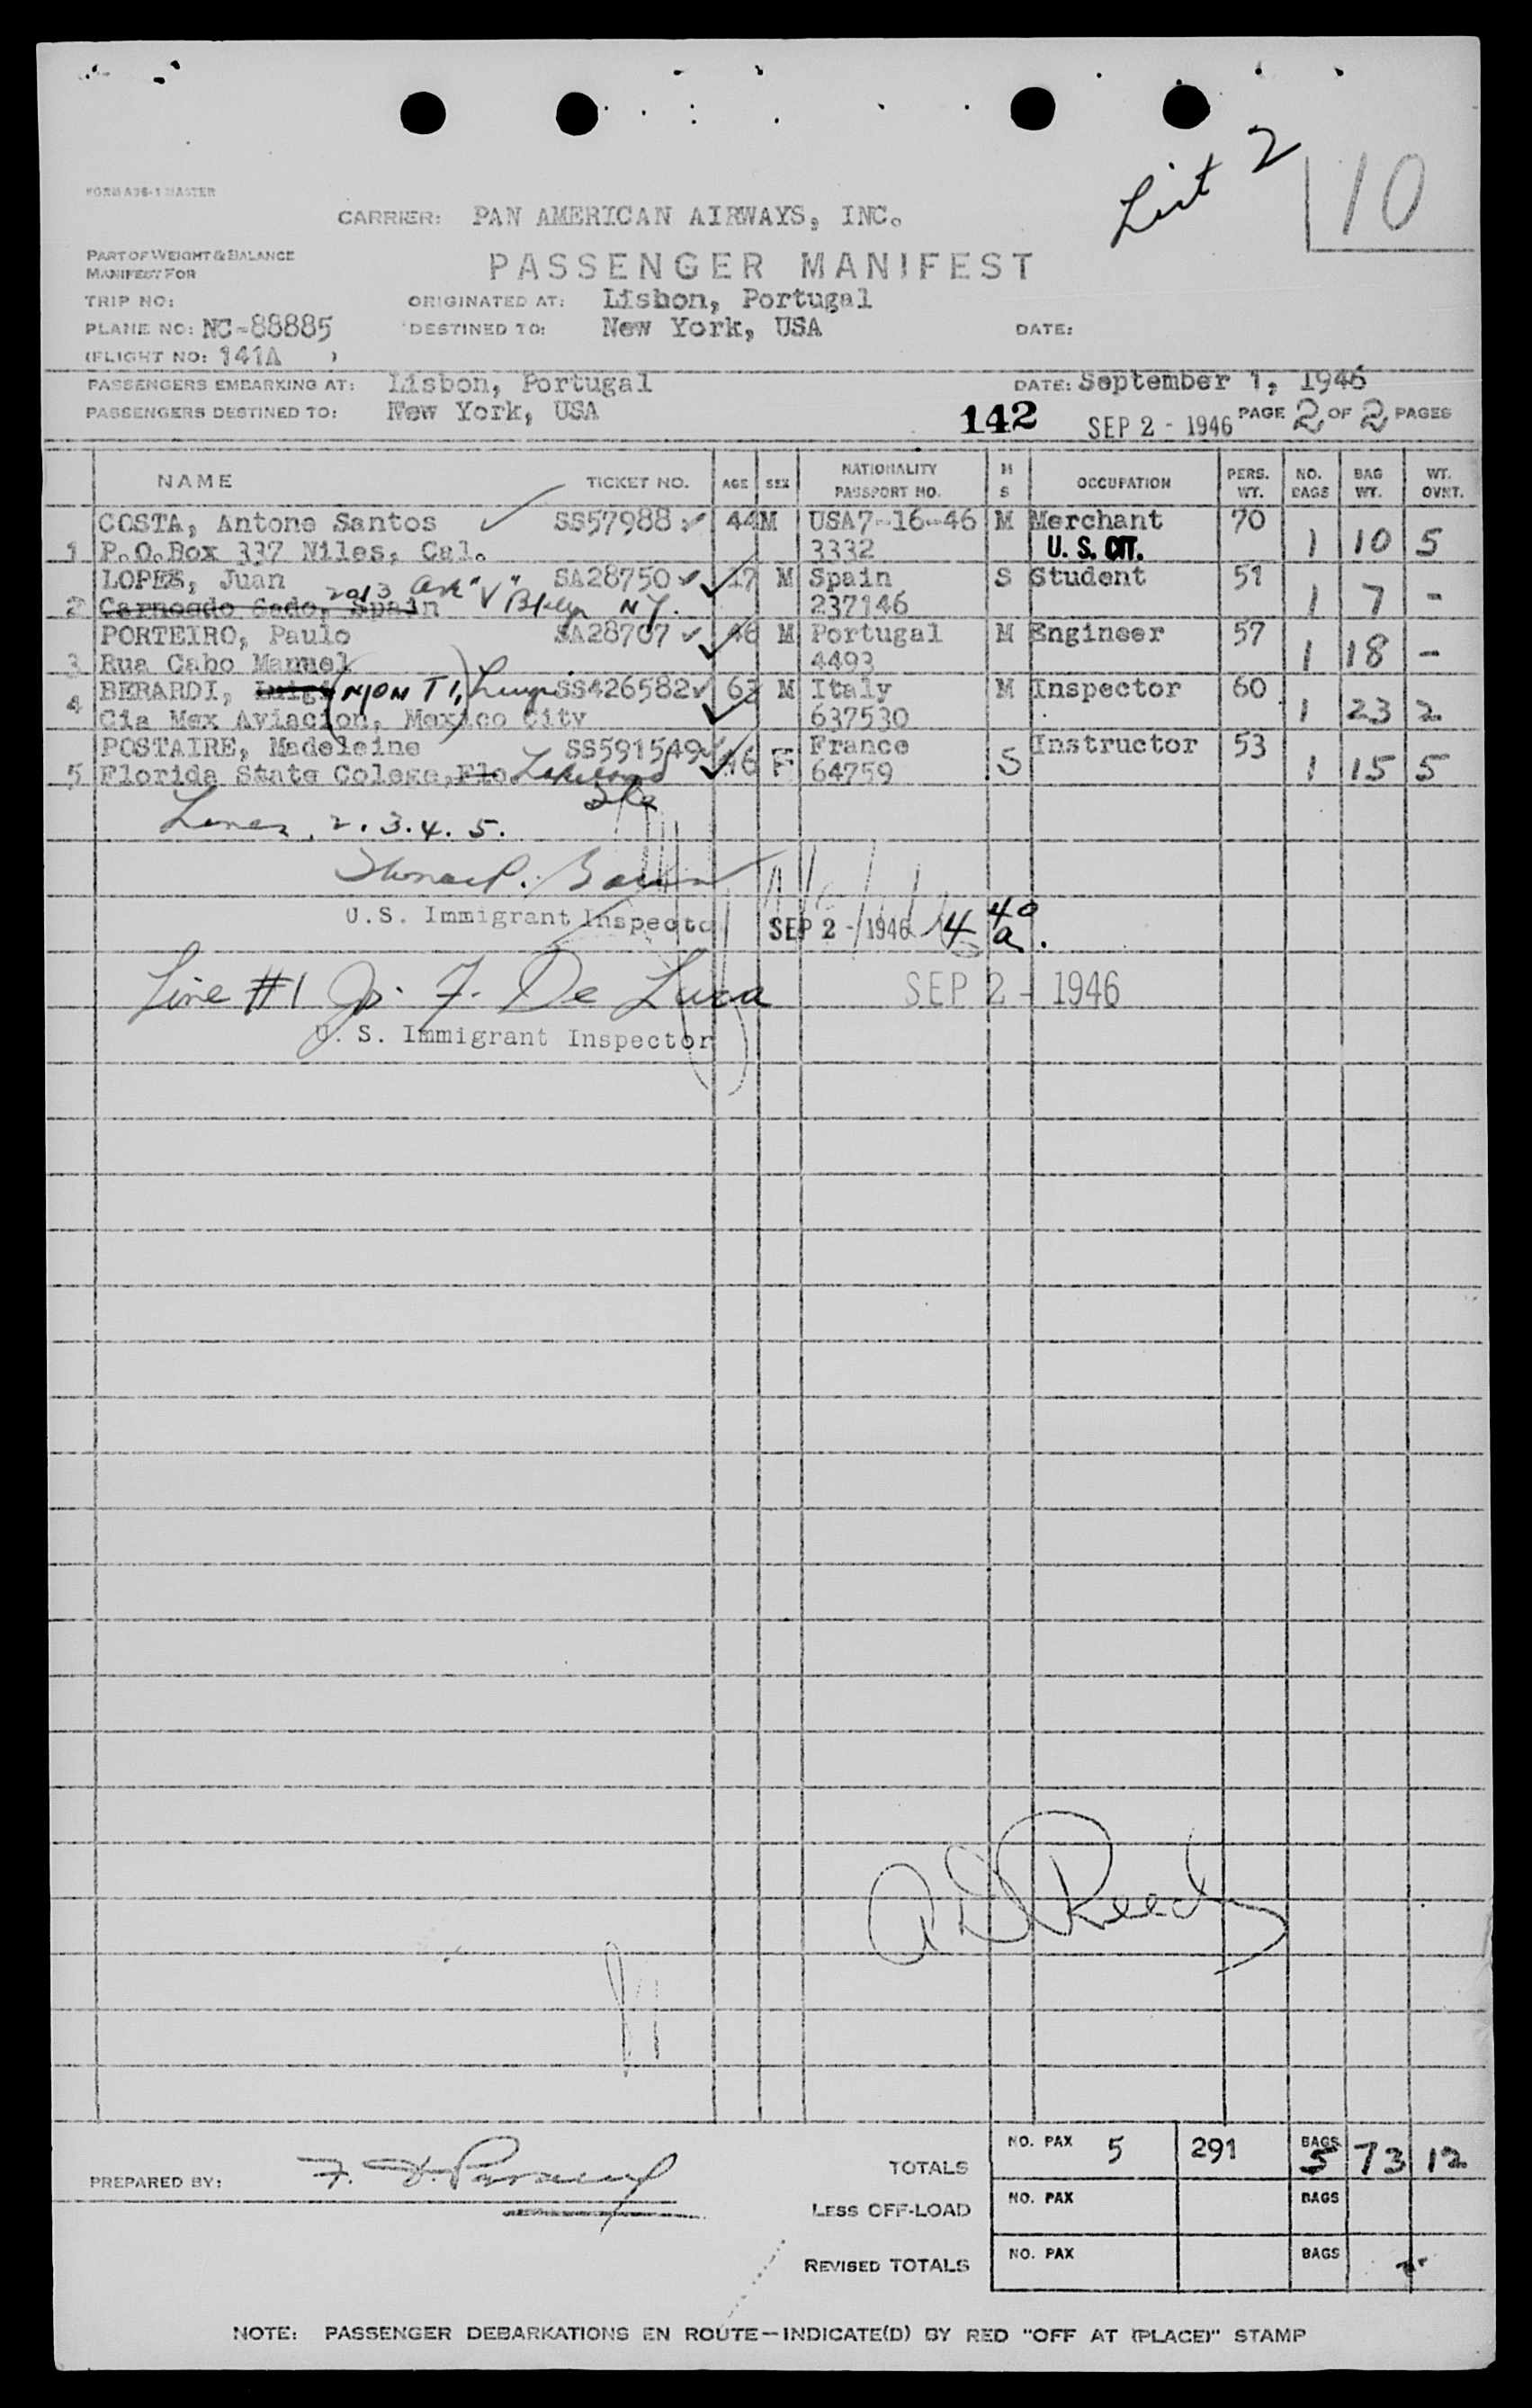 List 2
10
FORM A96-1 MASTER
CARRIER: PAN AMERICAN AIRWAYS, INC.
PART OF WEIGHT & BALANCE
MANIFEST FOR
PASSENGER MANIFEST
TRIP NO: ORIGINATED AT: Lisbon, Portugal
PLANE NO: NC-88885 DESTINED TO: New York, USA DATE:
(FLIGHT NO: 141A )
PASSENGERS EMBARKING AT: Lisbon, Portugal DATE: September 1, 1946
PASSENGERS DESTINED TO: New York, USA 142 SEP 2 - 1946 PAGE 2 OF 2 PAGES
NAME TICKET NO. AGE SEX NATIONALITY PASSPORT NO. M S OCCUPATION PERS. WT. NO. BAGS BAG WT. WT. OVNT.
COSTA, Antone Santos SS57988 44 M USA7-16-46 M Merchant 70
1 P.O.Box 337 Niles, Cal. 3332 U. S. CIT. 1 10 5
LOPES, Juan SA28750 17 M Spain S Student 51
2 Carnoedo Sado, Spain 2013 Ave "V" Bklyn NY. 237146 1 7 -
PORTEIRO, Paulo SA28707 46 M Portugal M Engineer 57
3 Rua Cabo Manuel 4493 1 18 -
BERARDI, Luigi (NION TI,) Luigi SS426582 63 M Italy M Inspector 60
4 Cia Mex Aviacion, Mexico City 637530 1 23 2
POSTAIRE, Madeleine SS591549 46 F France S Instructor 53
5 Florida State Colege, Fla. 64759 1 15 5
Fla
Lines, 2. 3. 4. 5.
U.S. Immigrant Inspector SEP 2 - 1946 4 40 a.
Line #1 Jo. F. De Luca SEP 2 - 1946
U. S. Immigrant Inspector
A D Reed
TOTALS NO. PAX 5 291 BAGS 5 73 12
PREPARED BY:
LESS OFF-LOAD NO. PAX BAGS
REVISED TOTALS NO. PAX BAGS
NOTE: PASSENGER DEBARKATIONS EN ROUTE—INDICATE(D) BY RED "OFF AT (PLACE)" STAMP